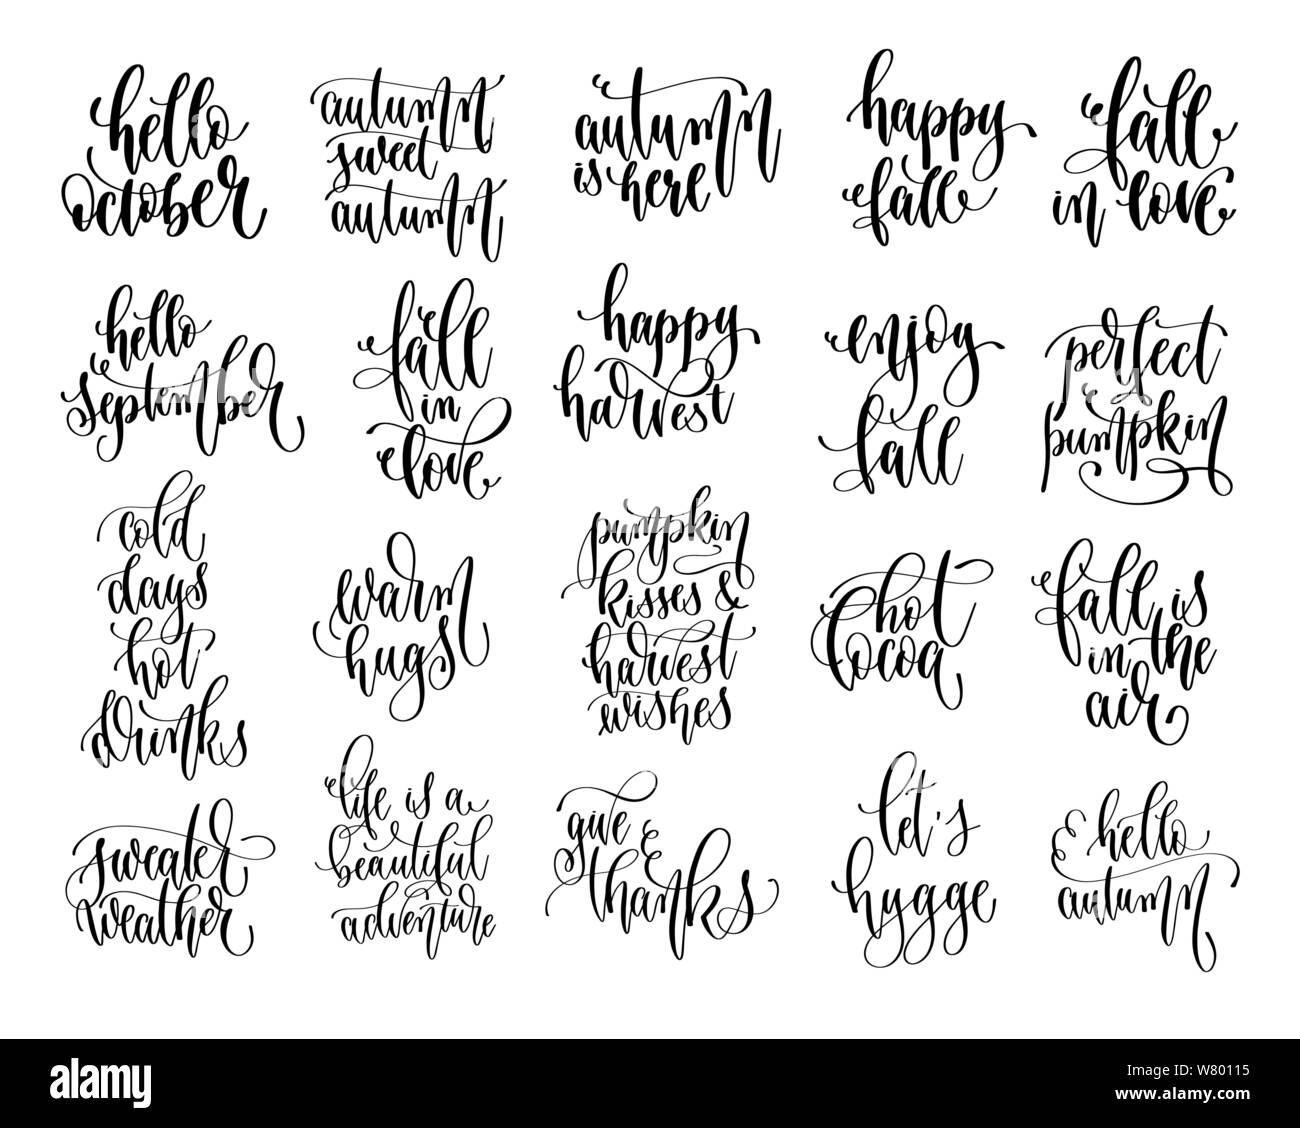 hello
october
autumn
sweet
autumn
autumn
is here
happy
fall
fall
in love
hello
september
fall
in
love
happy
harvest
enjoy
fall
perfect
pumpkin
cold
days
hot
drinks
warm
hugs
pumpkin
kisses &
harvest
wishes
hot
cocoa
fall is
in the
air
sweater
weather
life is a
beautiful
adventure
give
thanks
let's
hygge
hello
autumn
alamy
alamy
Image ID: W80115
www.alamy.com